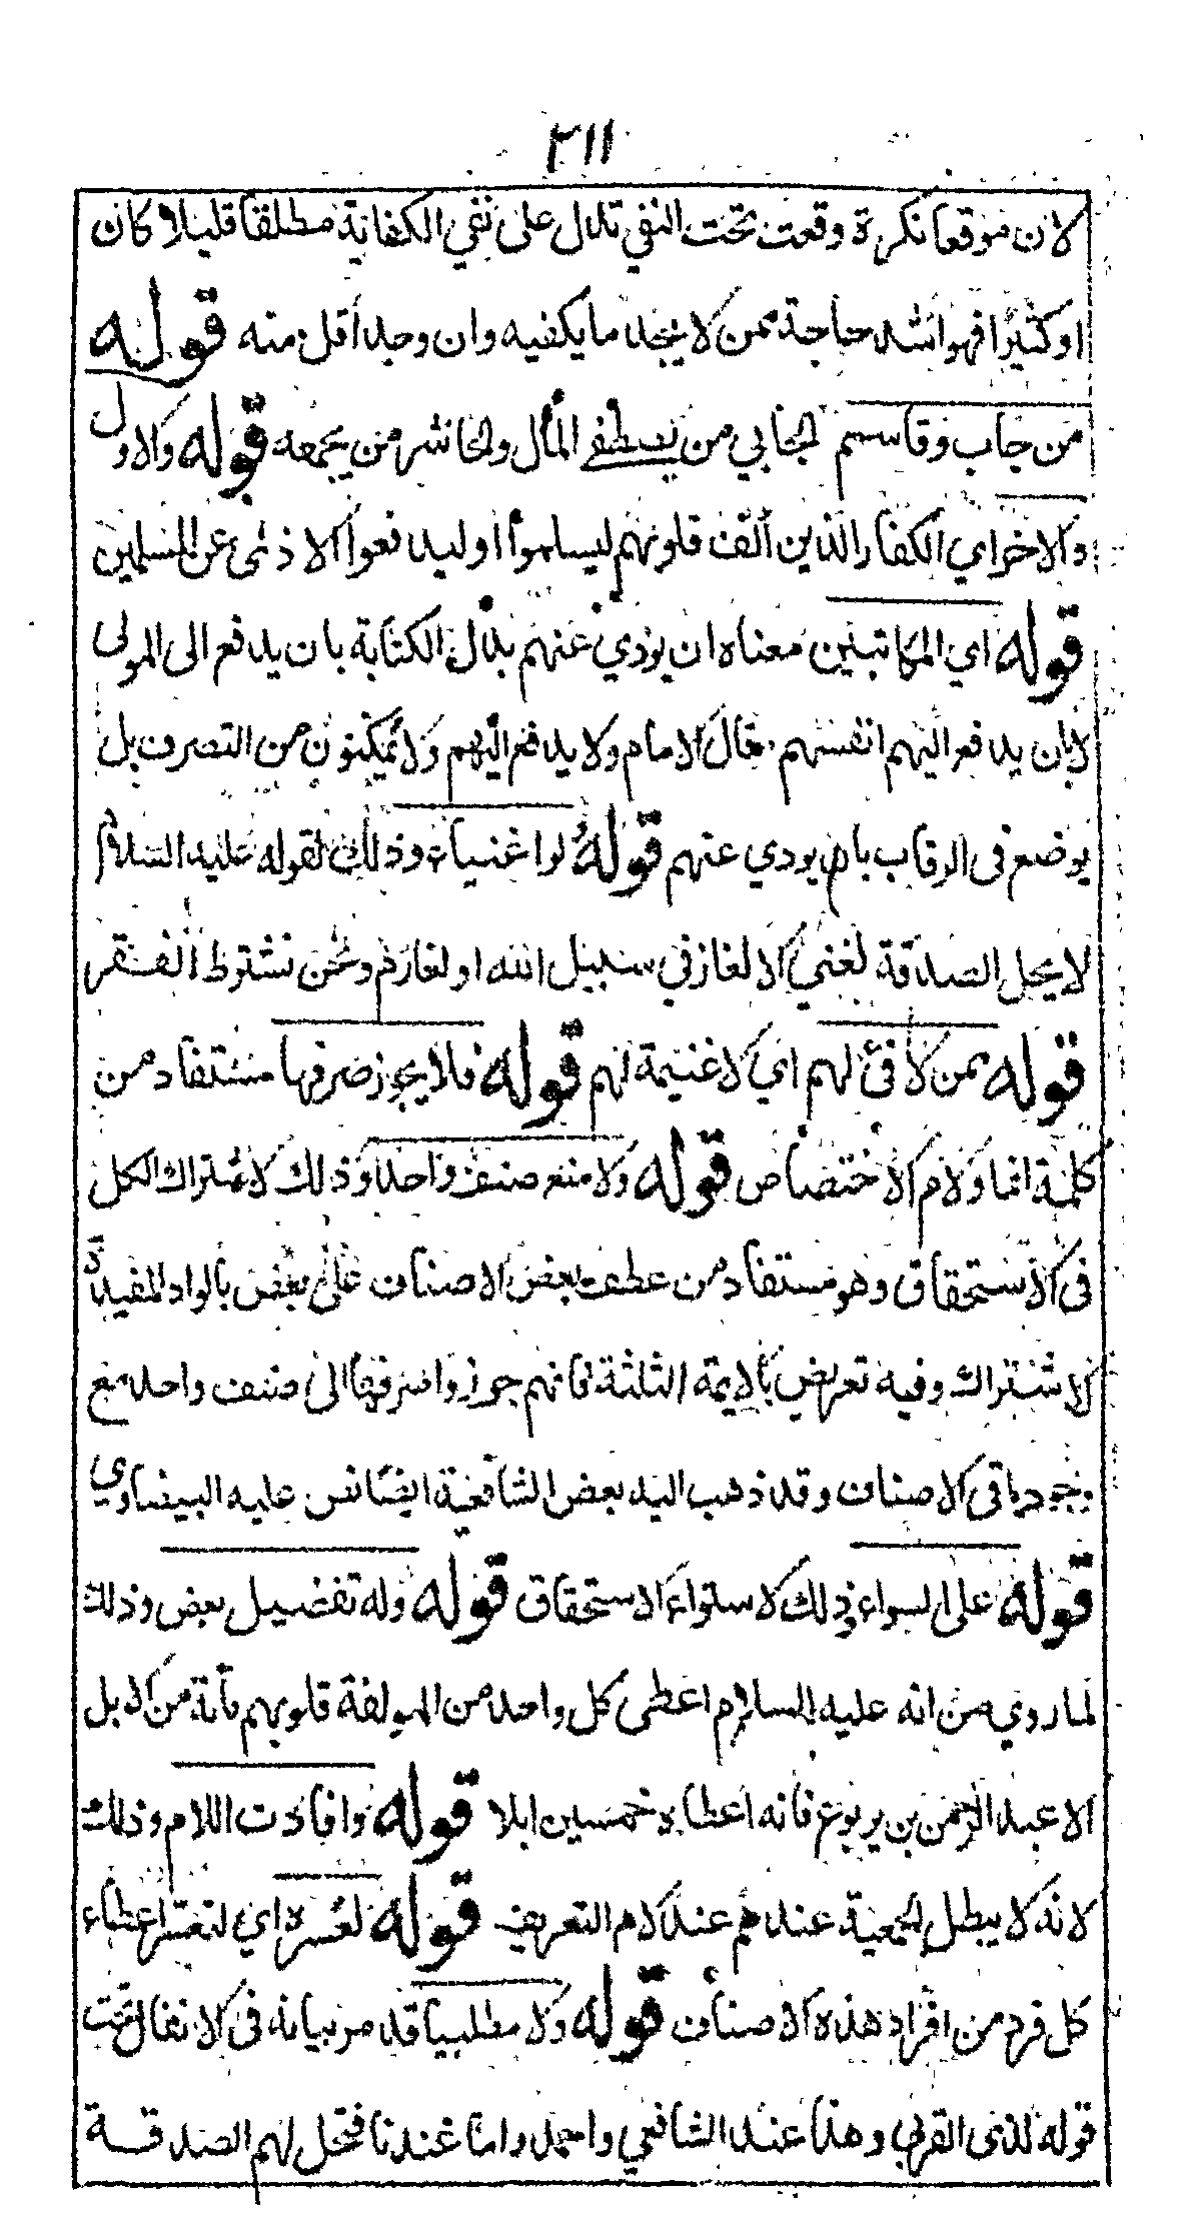 ٣١١
لان موقعا نكرة وقعت تحت النفي تدل على نفي الكفاية مطلقا قليلا كان
او كثيرا فهو اشد حاجة ممن لا يجد ما يكفيه وان وجد أقل منه قوله
من جاب وقاسم الجابي من يسطفى المال والحاشر من يجمعه قوله والاول
والاخر اي الكفار الذين الف قلوبهم ليسلموا او ليدفعوا الاذى عن المسلمين
قوله اي المكاتبين معناه ان يؤدي عنهم بدل الكتابة بان يدفع الى المولى
لا بان يدفع اليهم انفسهم قال الامام ولا يدفع اليهم ولا يمكنون من التصرف بل
يوضع فى الرقاب بان يودي عنهم قوله لو اغنياء وذلك لقوله عليه السلام
لا يحل الصدقة لغني الا لغاز في سبيل الله او لغارم ونحن نشترط الفقر
قوله ممن لا فئ لهم اي لا غنيمة لهم قوله فلا يجوز صرفها مستفاد من
كلمة انما ولام الاختصاص قوله ولا منع صنف واحد وذلك لاشتراك الكل
فى الاستحقاق وهو مستفاد من عطف بعض الاصناف على بعض بالواو المفيدة
للاشتراك وفيه تعريض بالايمة الثلثة فانهم جوزوا صرفها الى صنف واحد مع
وجود باقى الاصناف وقد ذهب اليه بعض الشافعية ايضا نص عليه البيضاوي
قوله على السواء وذلك لاستواء الاستحقاق قوله وله تفضيل بعض وذلك
لما روي من انه عليه السلام اعطى كل واحد من المولفة قلوبهم مأية من الابل
الا عبد الرحمن بن يربوع فانه اعطاه خمسين ابلا قوله وافادت اللام وذلك
لانه لا يبطل الجمعية عندهم عند لام التعريف قوله لعسره اي لتعسر اعطاء
كل فرد من افراد هذه الاصناف قوله ولا مطلبيا قد مر بيانه فى الانفال تحت
قوله لذى القربى وهذا عند الشافعي واحمد واما عندنا فتحل لهم الصدقة